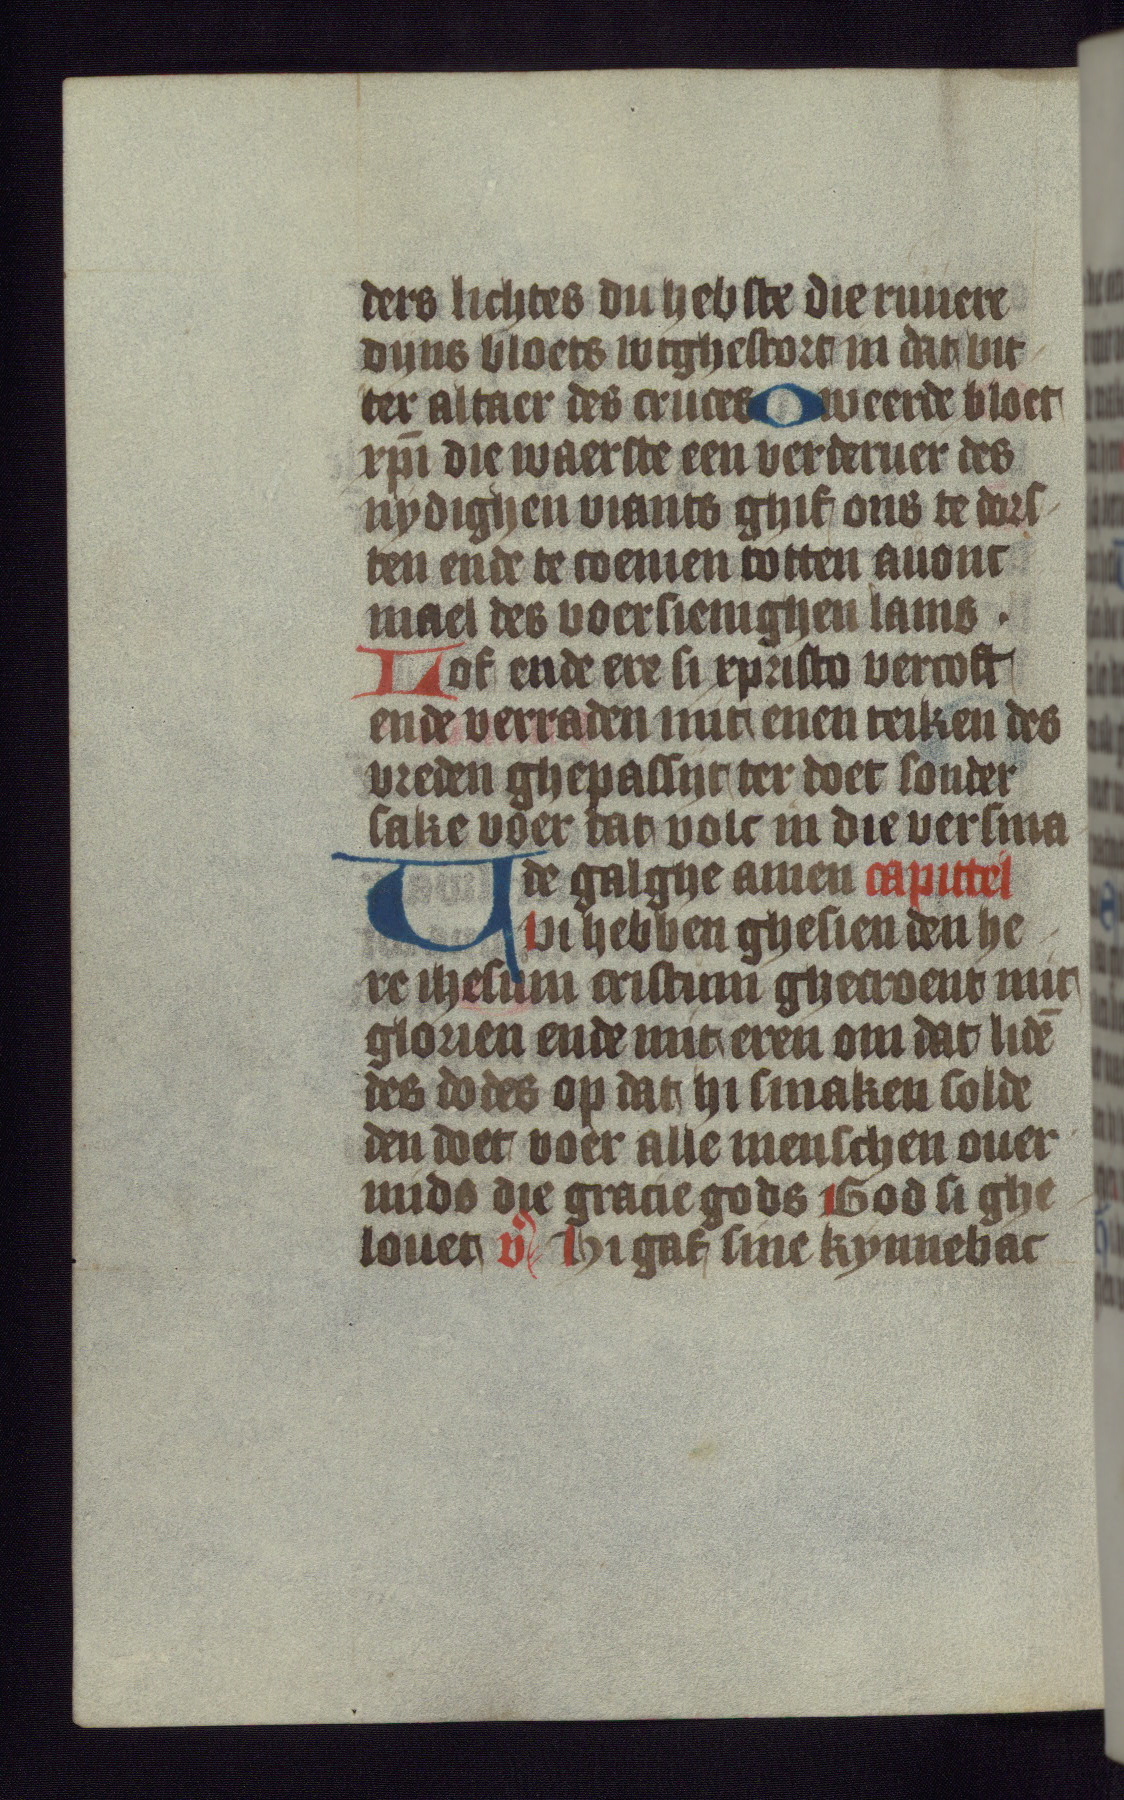 ders lichtes du hebste die riuiere
dyns bloets wtghestort in dat vit
ter altaer des cruces O weerde bloet
xp̄i die waerste een verderuer des
nydighen viants ghif ons te dors
ten ende te coemen totten auont
mael des voersienighen lams .
Lof ende ere si xpristo vercoft
ende verraden mit enen teiken des
vreden ghepassijt ter doet sonder
sake voer dat volc in die versma
de galghe amen capittel
Wi hebben ghesien den he
re ihesum cristum ghecroent mit
glorien ende mit eren om dat lidē
des dodes op dat hi smaken solde
den doet voer alle menschen ouer
mids die gracie gods God si ghe
louet v̊ Hi gaf sine kynnebac